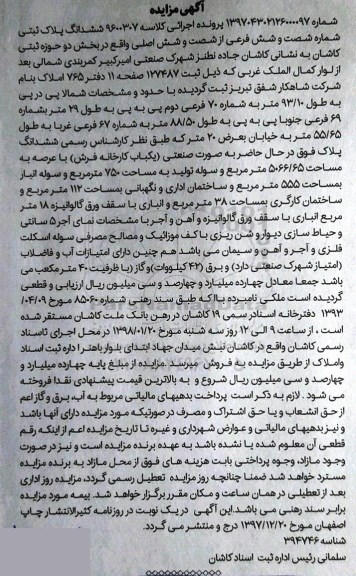 آگهی مزایده
شماره ۱۳۹۷۰۴۳۰۲۱۲۶۰۰۰۰۹۷ پرونده اجرائی کلاسه ۹۶۰۰۳۰۷ ششدانگ پلاک ثبتی
شماره شصت و شش فرعی از شصت و شش اصلی واقع در بخش دو حوزه ثبتی
کاشان به نشانی کاشان جاده نطنز شهرک صنعتی امیرکبیر کمربندی شمالی بعد
از لوار کمال الملک غربی که ذیل ثبت ۱۲۷۴۸۷ صفحه ۱۱ دفتر ۷۶۵ املاک بنام
شرکت شاهکار شفق تبریز ثبت گردیده با حدود و مشخصات شمالا پی در پی
به طول ۹۳/۱۰ متر به شماره ۷۰ فرعی دوم پی به پی به طول ۲۹ متر بشماره
۶۹ فرعی جنوبا پی به پی به طول ۸۸/۵۰ متر به شماره ۶۷ فرعی غربا به طول
۵۵/۶۵ متر به خیابان بعرض ۲۰ متر که طبق نظر کارشناس رسمی ششدانگ
پلاک فوق در حال حاضر به صورت صنعتی (یکباب کارخانه فرش) با عرصه به
مساحت ۵۰۶۶/۶۵ متر مربع و سوله تولید به مساحت ۷۵۰ مترمربع و سوله انبار
بمساحت ۵۵۵ متر مربع و ساختمان اداری و نگهبانی بمساحت ۱۱۲ متر مربع و
ساختمان کارگری بمساحت ۳۸ متر مربع و انباری با سقف ورق گالوانیزه ۱۸ متر
مربع انباری با سقف ورق گالوانیزه و آهن و آجر با مشخصات نمای آجر ۵ سانتی
و حیاط سازی دیوار و شن ریزی با کف موزائیک و مصالح مصرفی سوله اسکلت
فلزی و آجر و آهن و سیمان می باشد هم چنین دارای امتیازات آب و فاضلاب
(امتیاز شهرک صنعتی دارد) و برق (۴۲ کیلووات) و گاز (با ظرفیت ۴۰ متر مکعب می
باشد جمعا معادل چهارده میلیارد و چهارصد و سی میلیون ریال ارزیابی و قطعی
گردیده است ملکی نامبرده باکه طبق سند رهنی شماره ۸۵۰۶۰ مورخ ۰۴/۰۹/
۱۳۹۳ دفترخانه اسناد رسمی ۱۹ کاشان در رهن بانک ملت کاشان مستقر شده
است ، از ساعت ۹ الی ۱۲ روز سه شنبه مورخ ۱۳۹۸/۰۱/۲۰ در محل اجرای ثاسناد
رسمی کاشان واقع در کاشان نبش میدان جهاد ابتدای بلوار باهنر ا داره ثبت اسناد
واملاک از طریق مزایده به فروش میرسد .مزایده از مبلغ پایه چهارده میلیارد و
چهارصد و سی میلیون ریال شروع و به بالاترین قیمت پیشنهادی نقدا فروخته
می شود . لازم به ذکر است پرداخت بدهیهای مالیاتی مربوط به آب، برق و گاز اعم
از حق انشعاب و یا حق اشتراک و مصرف در صورتیکه مورد مزایده دارای آنها باشد
و نیز بدهیهای مالیاتی و عوارض شهرداری و غیره تا تاریخ مزایده اعم از اینکه رقم
قطعی آن معلوم شده یا نشده باشد به عهده برنده مزایده است و نیز در صورت
وجود مازاد، وجوه پرداختی بابت هزینه های فوق از محل مازاد به برنده مزایده
مسترد خواهد شد ضمنا چنانچه روز مزایده تعطیل رسمی گردد، مزایده روز اداری
بعد از تعطیلی در همان ساعت و مکان مقرر برگزار خواهد شد. بیمه مورد مزایده
برابر سند رهنی می باشد.این آگهی در یک نوبت در روزنامه کثیرالانتشار چاپ
اصفهان مورخ ۱۳۹۷/۱۲/۲۰ درج و منتشر می گردد.
شناسه ۳۹۴۷۴۶
سلمانی رئیس اداره ثبت اسناد کاشان